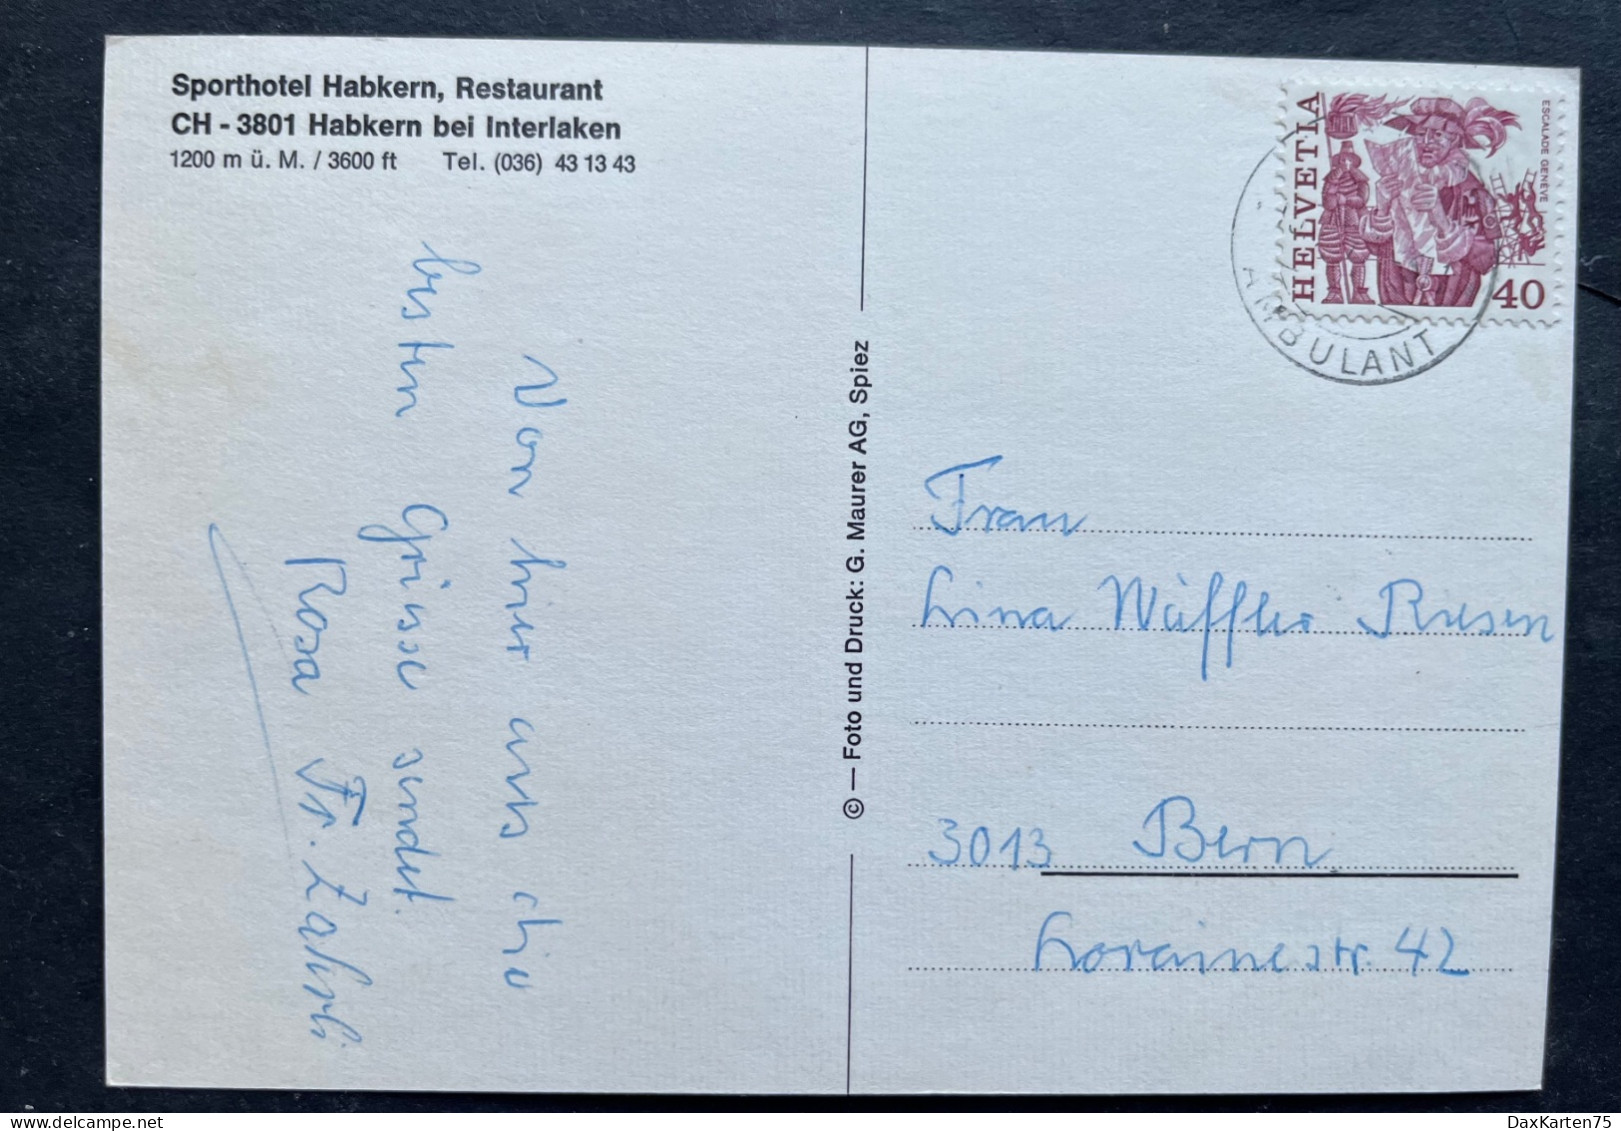 Sporthotel Habkern, Restaurant
CH - 3801 Habkern bei Interlaken
1200 m ü. M. / 3600 ft Tel. (036) 43 13 43
Von hier aus die
besten Grüsse sendet
Rosa Fr. Zahrli
© — Foto und Druck: G. Maurer AG, Spiez
HELVETIA
ESCALADE GENÈVE
40
AMBULANT
Frau
Lina Wäffler Riesen
3013 Bern
Lorainestr. 42
DaxKarten75